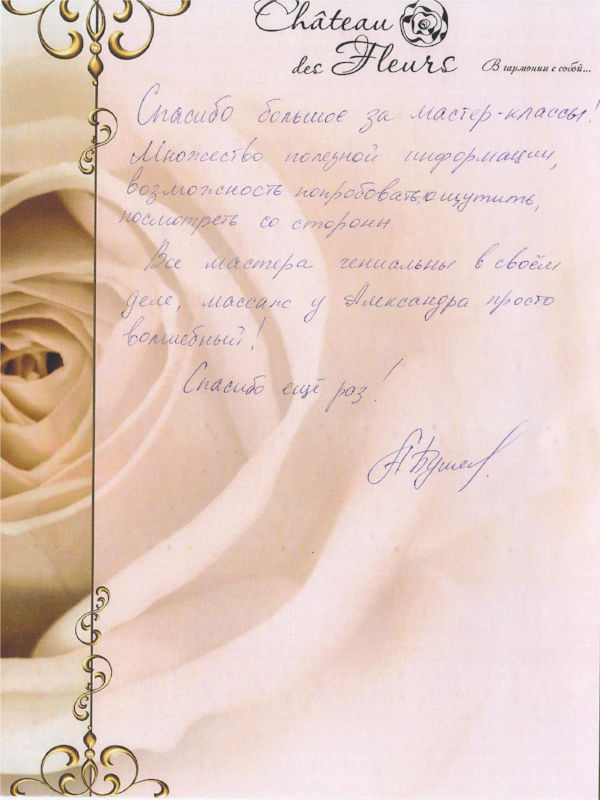 Château
des Fleurs
В гармонии с собой...
Спасибо большое за мастер-классы!
Множество полезной информации,
возможность попробовать, ощутить,
посмотреть со сторон
Все мастера гениальны в своём
деле, массаж у Александра просто
волшебный!
Спасибо ещё раз!